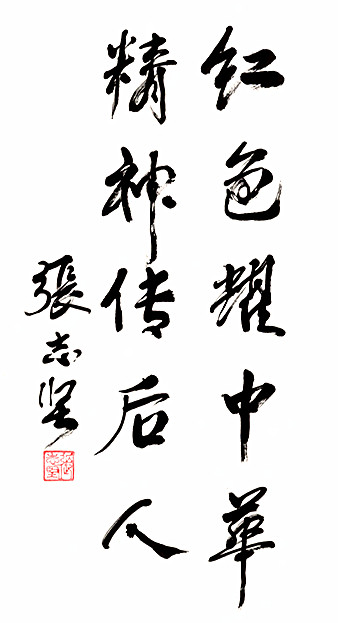 红色耀中華
精神传后人
張志坚